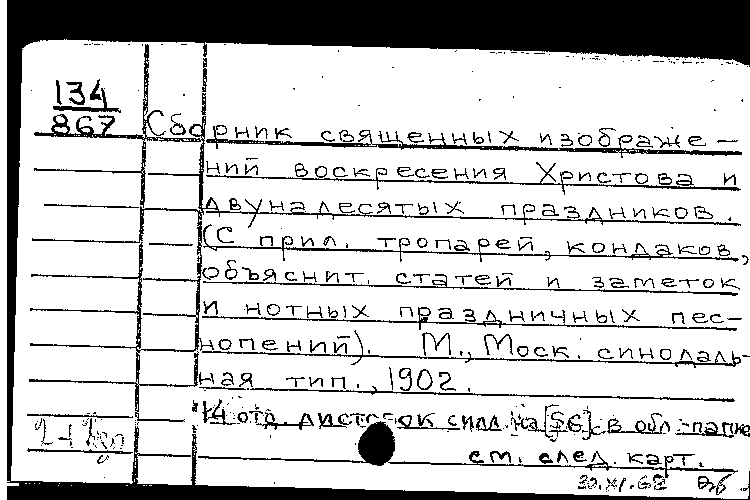 134
867
Сборник священных изображе-
ний воскресения Христова и
двунадесятых праздников.
(С прил. тропарей, кондаков,
объяснит. статей и заметок
и нотных праздничных пес-
нопений). М., Моск. синодаль-
ная тип., 1902.
14 отд. листовок с илл. на [56] с. в обл.-папке
см. след. карт.
30.XI.62